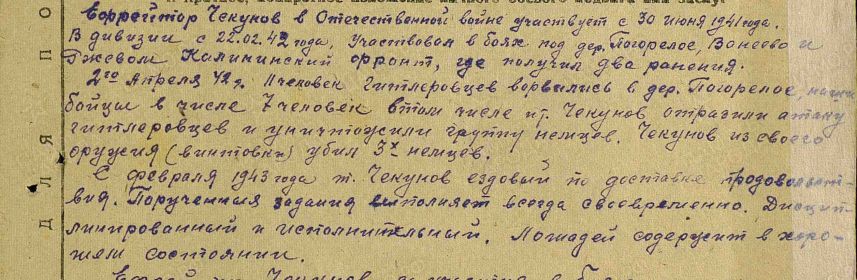 Ефрейтор Чекунов в Отечественной войне участвует с 30 июня 1941 года.
В дивизии с 22.02.42 года, Участвовал в боях под дер. Погорелое, Ванеево и
Ржевом Калининский фронт, где получил два ранения.
2го Апреля 42 г. 11 человек Гитлеровцев ворвались в дер. Погорелое наши
бойцы в числе 7 человек в том числе и т. Чекунов отразили атаку
гитлеровцев и уничтожили группу немцев. Чекунов из своего
оружия (винтовки) убил 3х немцев.
С февраля 1943 года т. Чекунов ездовый по доставке продовольст-
вия. Порученныя задания выполняет всегда своевременно. Дисцип-
линированный и исполнительный. Лошадей содержит в хоро-
шем состоянии.
Чекунов
ДЛЯ ПО